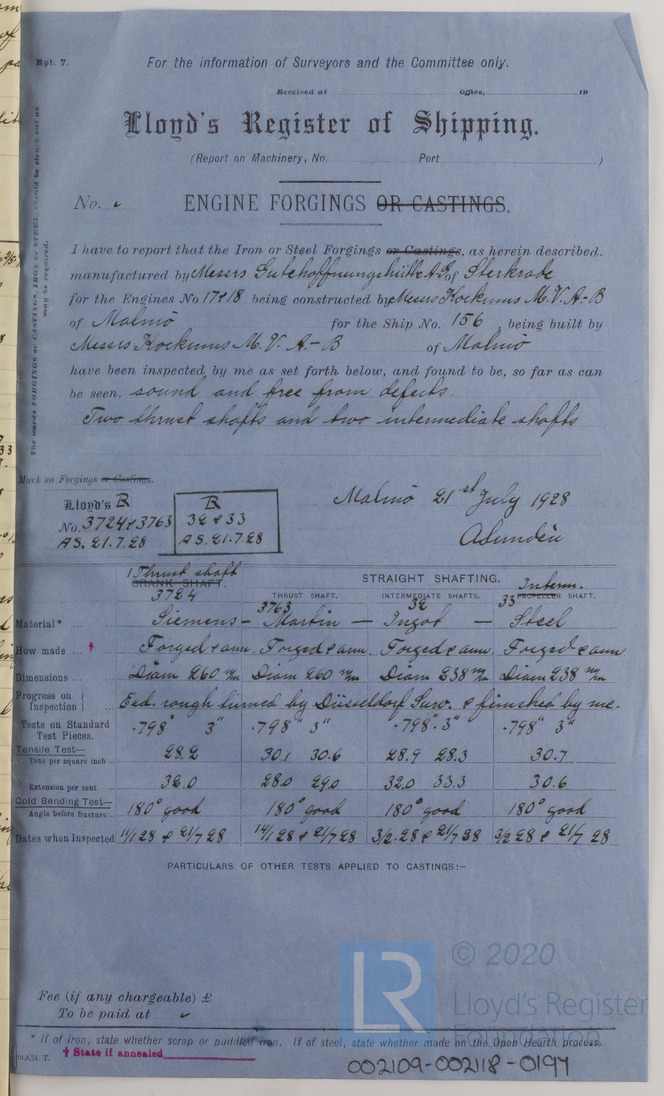 Rpt. 7.
For the information of Surveyors and the Committee only.
Received at Office, 19
Lloyd's Register of Shipping.
(Report on Machinery, No. Port )
No. ENGINE FORGINGS OR CASTINGS.
I have to report that the Iron or Steel Forgings or Castings, as herein described,
manufactured by Messrs Gutehoffnungshütte A.G. of Sterkrade
for the Engines No 17 & 18 being constructed by Messrs Kockums M. V. A-B
of Malmö for the Ship No. 156 being built by
Messrs Kockums M. V. A-B of Malmö
have been inspected by me as set forth below, and found to be, so far as can
be seen, sound and free from defects.
Two thrust shafts and two intermediate shafts
The words FORGINGS or CASTINGS, IRON or STEEL, should be struck out as
may be required.
Mark on Forgings or Castings.
Lloyd's R
No. 3724 & 3763
A S. 21.7.28
R
32 & 33
A S. 21.7.28
Malmö 21st July 1928
1 Thrust shaft
CRANK SHAFT.
3724
STRAIGHT SHAFTING.
THRUST SHAFT.
3763
INTERMEDIATE SHAFTS.
32
Interm.
33 PROPELLER SHAFT.
Material* Siemens - Martin - Ingot - Steel
How made † Forged & ann. Forged & ann. Forged & ann. Forged & ann.
Dimensions Diam 260 m/m Diam 260 m/m Diam 238 m/m Diam 238 m/m
Progress on Inspection Exd. rough turned by Düsseldorf Surv. & finished by me.
Tests on Standard Test Pieces. .798" 3" .798" 3" .798" 3" .798" 3"
Tensile Test—
Tons per square inch 28.2 30.1 30.6 28.9 28.3 30.7
Extension per cent 32.0 28.0 29.0 32.0 33.3 30.6
Cold Bending Test—
Angle before fracture 180° good 180° good 180° good 180° good
Dates when Inspected 11/1 28 & 21/7 28 14/1 28 & 21/7 28 3/2.28 & 21/7 28 3/2 28 & 21/7 28
PARTICULARS OF OTHER TESTS APPLIED TO CASTINGS:—
Fee (if any chargeable) £
To be paid at
* If of iron, state whether scrap or puddled iron. If of steel, state whether made on the Open Hearth process.
† State if annealed
LR
© 2020
Lloyd's Register
Foundation
002109-002118-0194